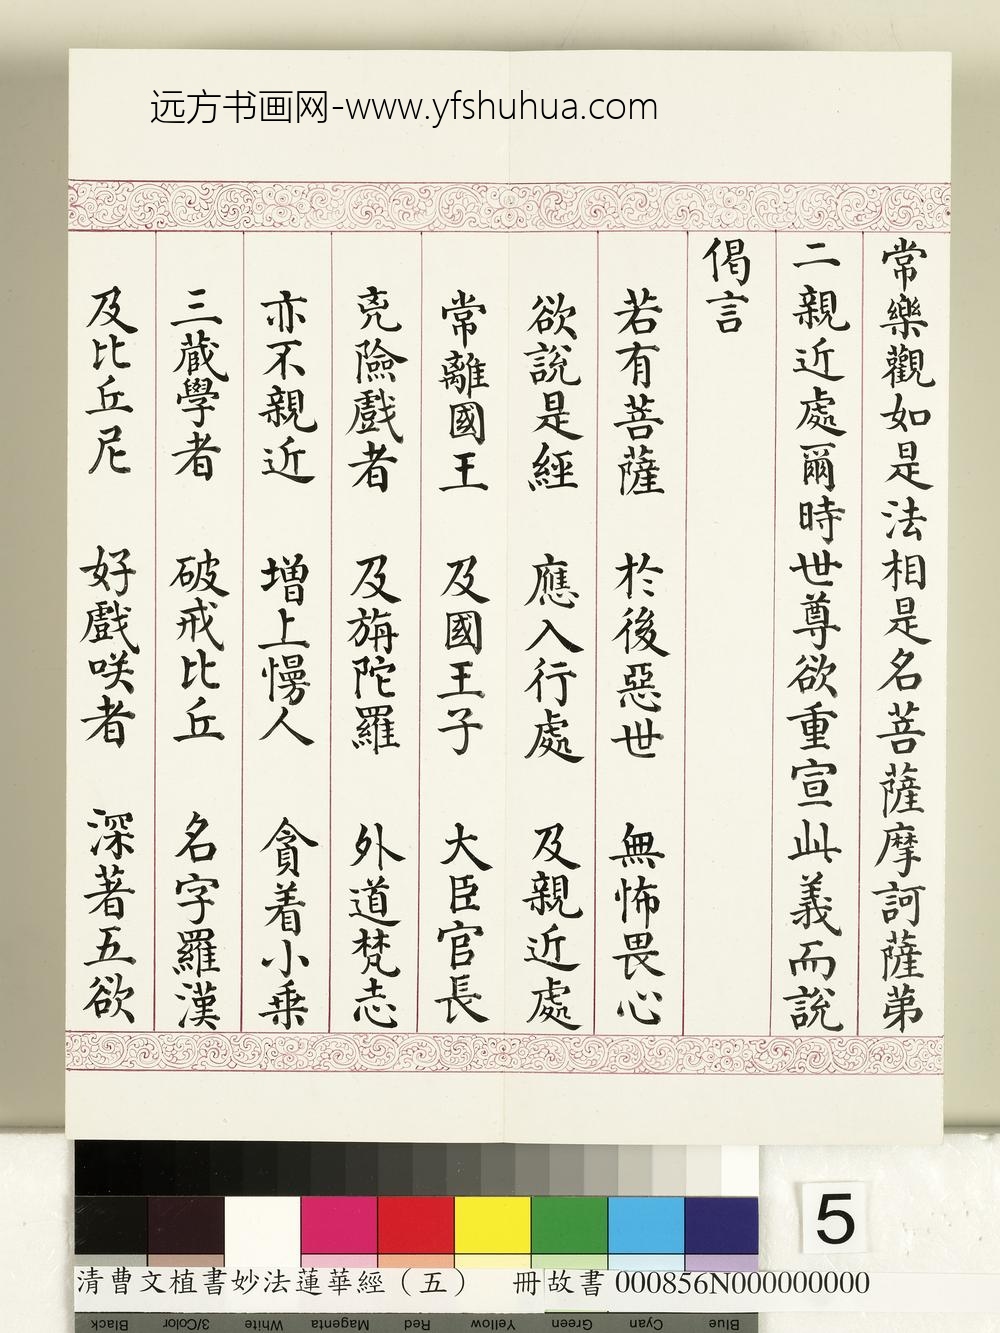 远方书画网-www.yfshuhua.com
常樂觀如是法相是名菩薩摩訶薩第
二親近處爾時世尊欲重宣此義而說
偈言
若有菩薩 於後惡世 無怖畏心
欲說是經 應入行處 及親近處
常離國王 及國王子 大臣官長
兇險戲者 及旃陀羅 外道梵志
亦不親近 增上慢人 貪着小乗
三藏學者 破戒比丘 名字羅漢
及比丘尼 好戲咲者 深著五欲
5
清曹文植書妙法蓮華經（五） 冊故書000856N000000000
Black 3/Color White Magenta Red Yellow Green Cyan Blue